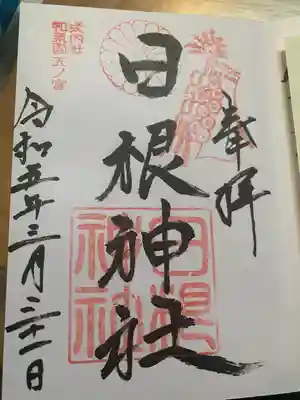 奉拝
日根神社
日根
神社
式内社
和泉国五ノ宮
令和五年三月三十一日